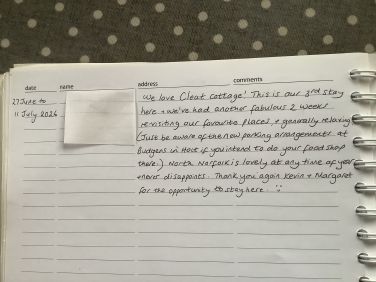 date name address comments
27 June to We love Cleat Cottage! This is our 3rd stay
11 July 2026 here + we've had another fabulous 2 weeks
re-visiting our favourite places + generally relaxing
(Just be aware of the new parking arrangements at
Budgens in Holt if you intend to do your food shop
there.) North Norfolk is lovely at any time of year
+ never disappoints. Thank you again Kevin + Margaret
for the opportunity to stay here.